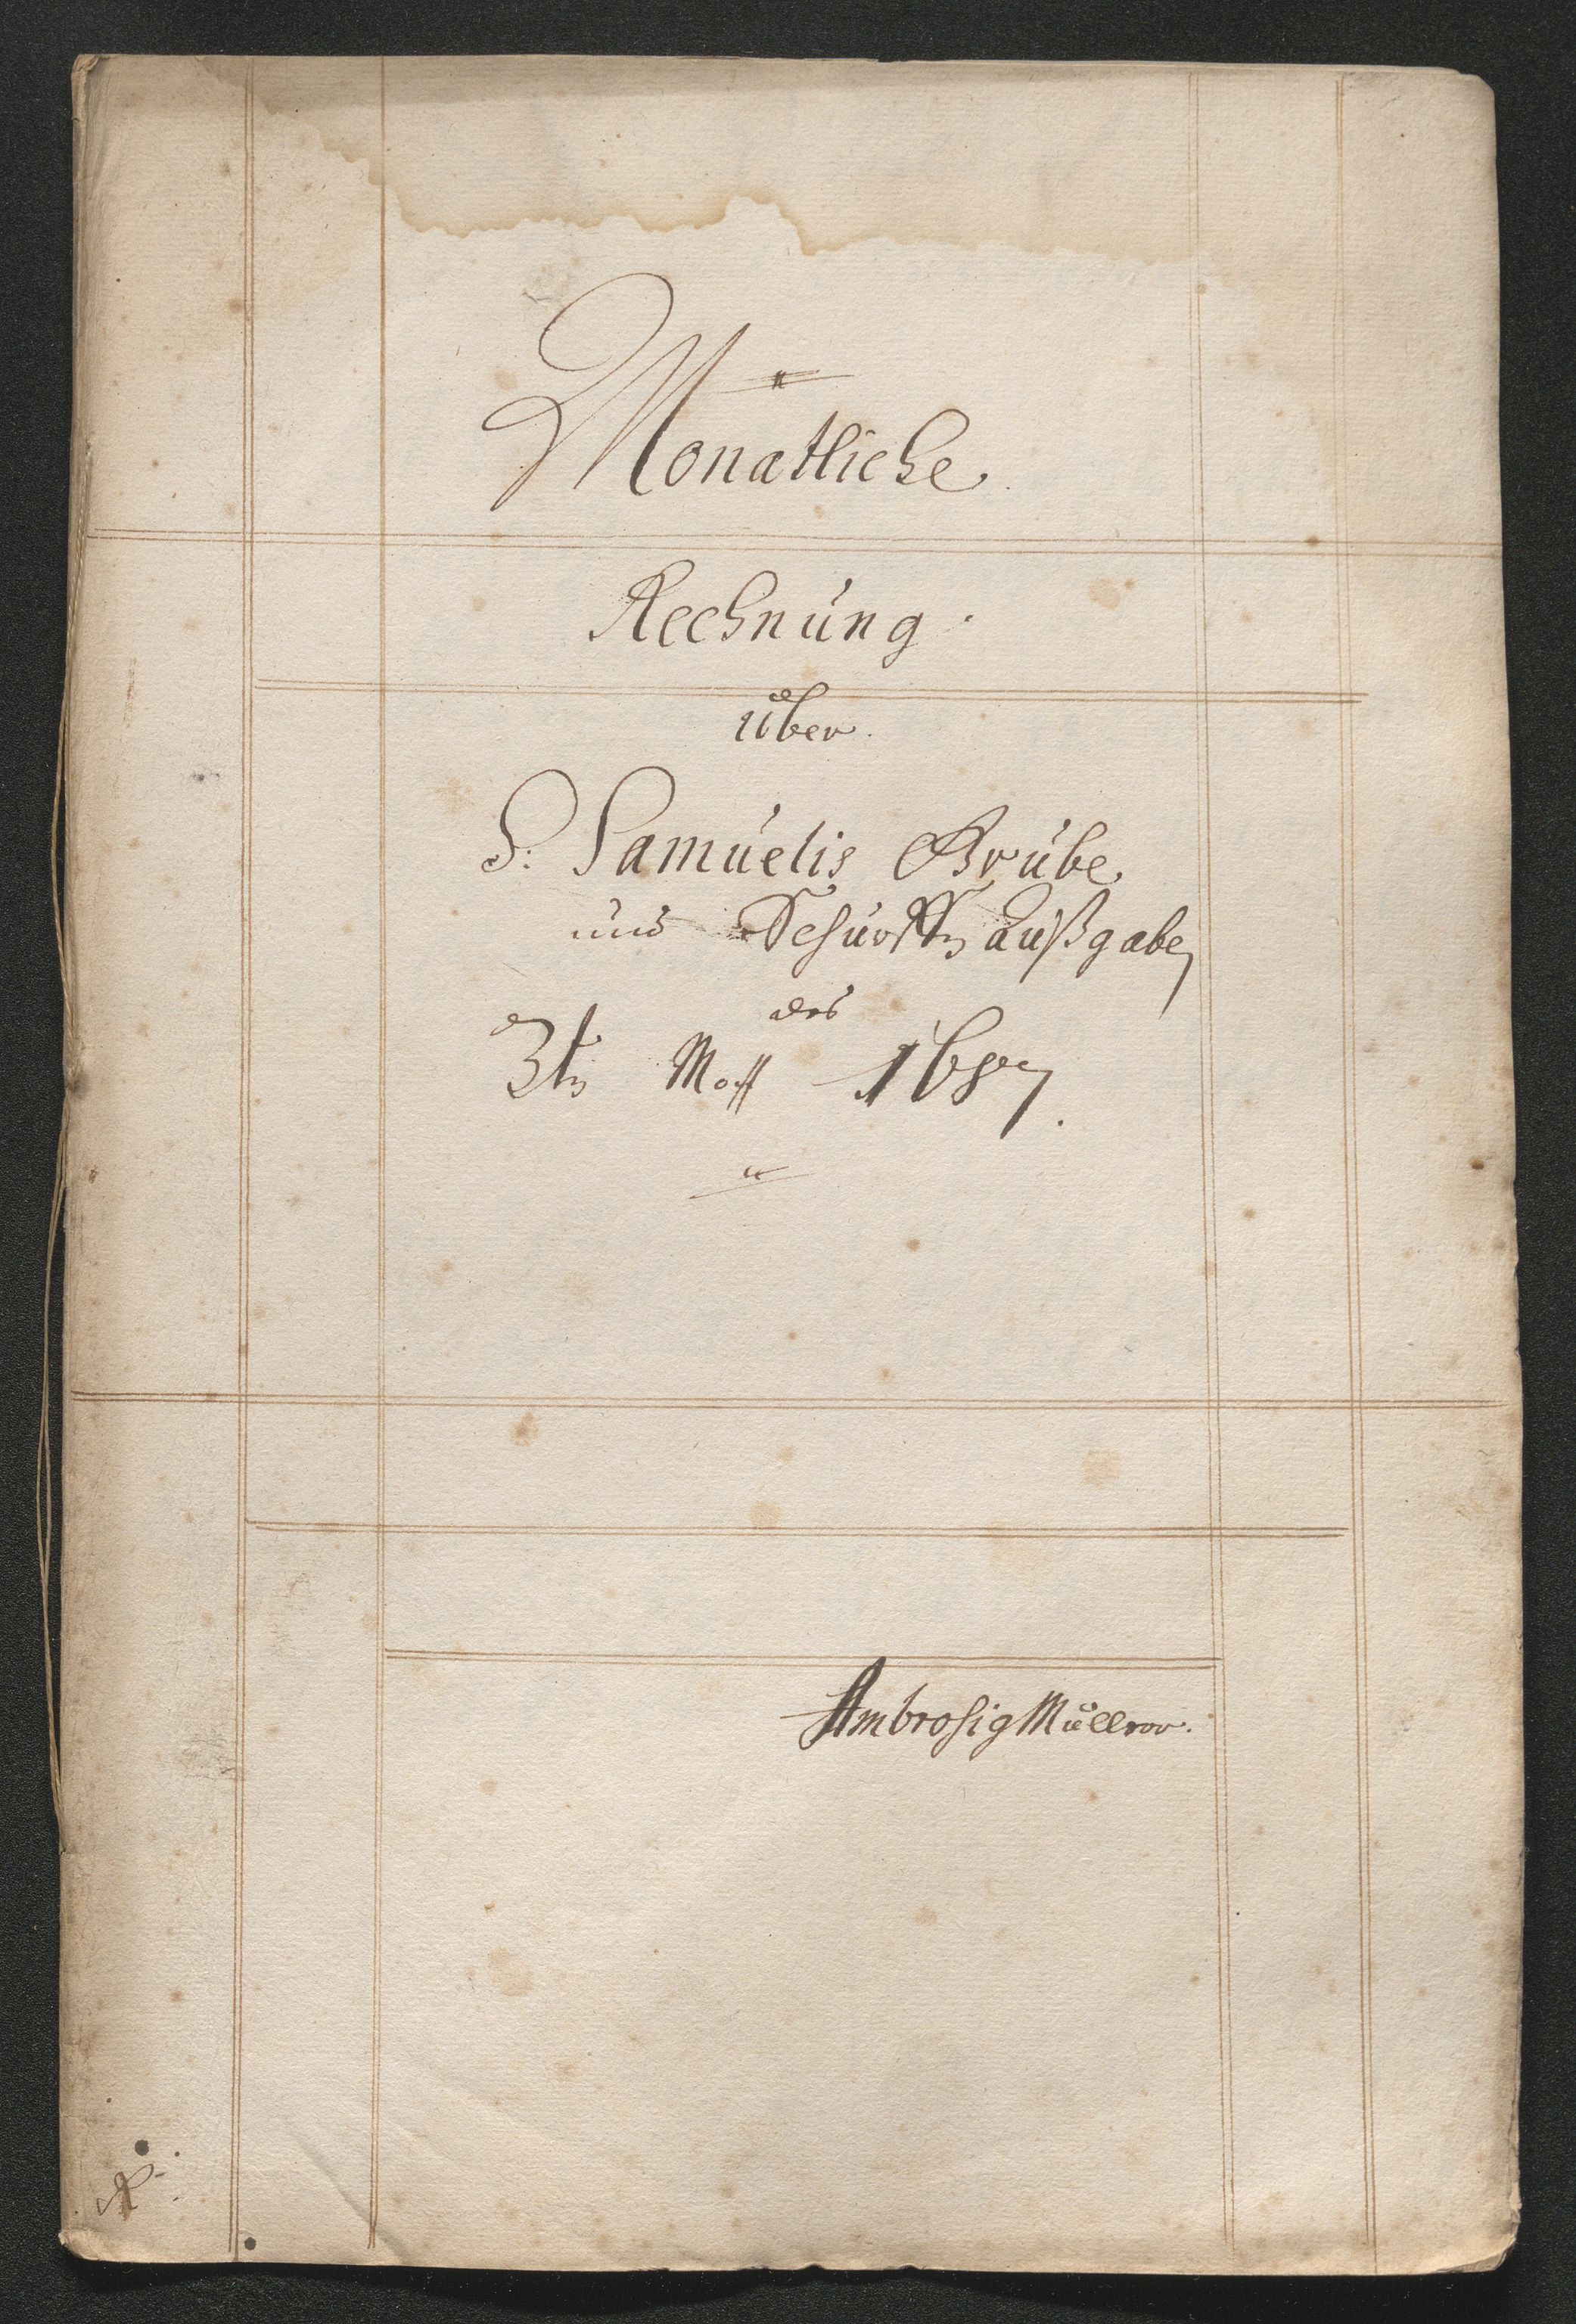 Monatliche
Rechnung
über
S: Samuelis Grube
und Schürffen außgaben
des
3tn 1687.
Ambrosig Müller.